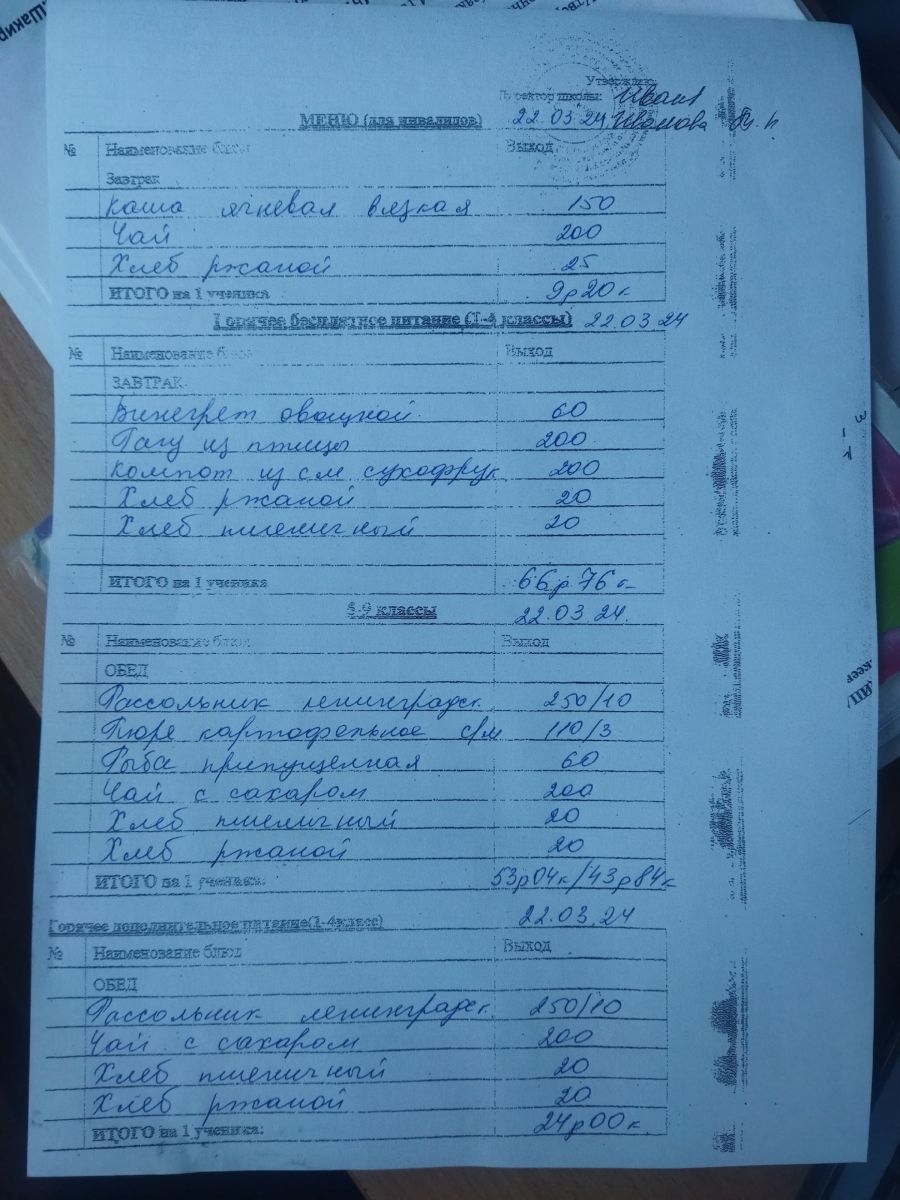 Утверждаю
Директор школы:
МЕНЮ (для инвалидов) 22.03.24 Иванова
№ Наименование блюд Выход
Завтрак
Каша ячневая вязкая 150
Чай 200
Хлеб ржаной 25
ИТОГО на 1 ученика 9р20к
Горячее бесплатное питание (1-4 классы) 22.03.24
№ Наименование блюд Выход
ЗАВТРАК
Винегрет овощной 60
Рагу из птицы 200
Компот из см сухофрук 200
Хлеб ржаной 20
Хлеб пшеничный 20
ИТОГО на 1 ученика 66р76к
5-9 классы 22.03.24.
№ Наименование блюд Выход
ОБЕД
Рассольник ленинградск. 250/10
Пюре картофельное с/м 110/3
Рыба припущенная 60
Чай с сахаром 200
Хлеб пшеничный 20
Хлеб ржаной 20
ИТОГО на 1 ученика: 53р04к/43р84к
Горячее дополнительное питание(1-4класс) 22.03.24
№ Наименование блюд Выход
ОБЕД
Рассольник ленинградск. 250/10
Чай с сахаром 200
Хлеб пшеничный 20
Хлеб ржаной 20
ИТОГО на 1 ученика: 24р00к.